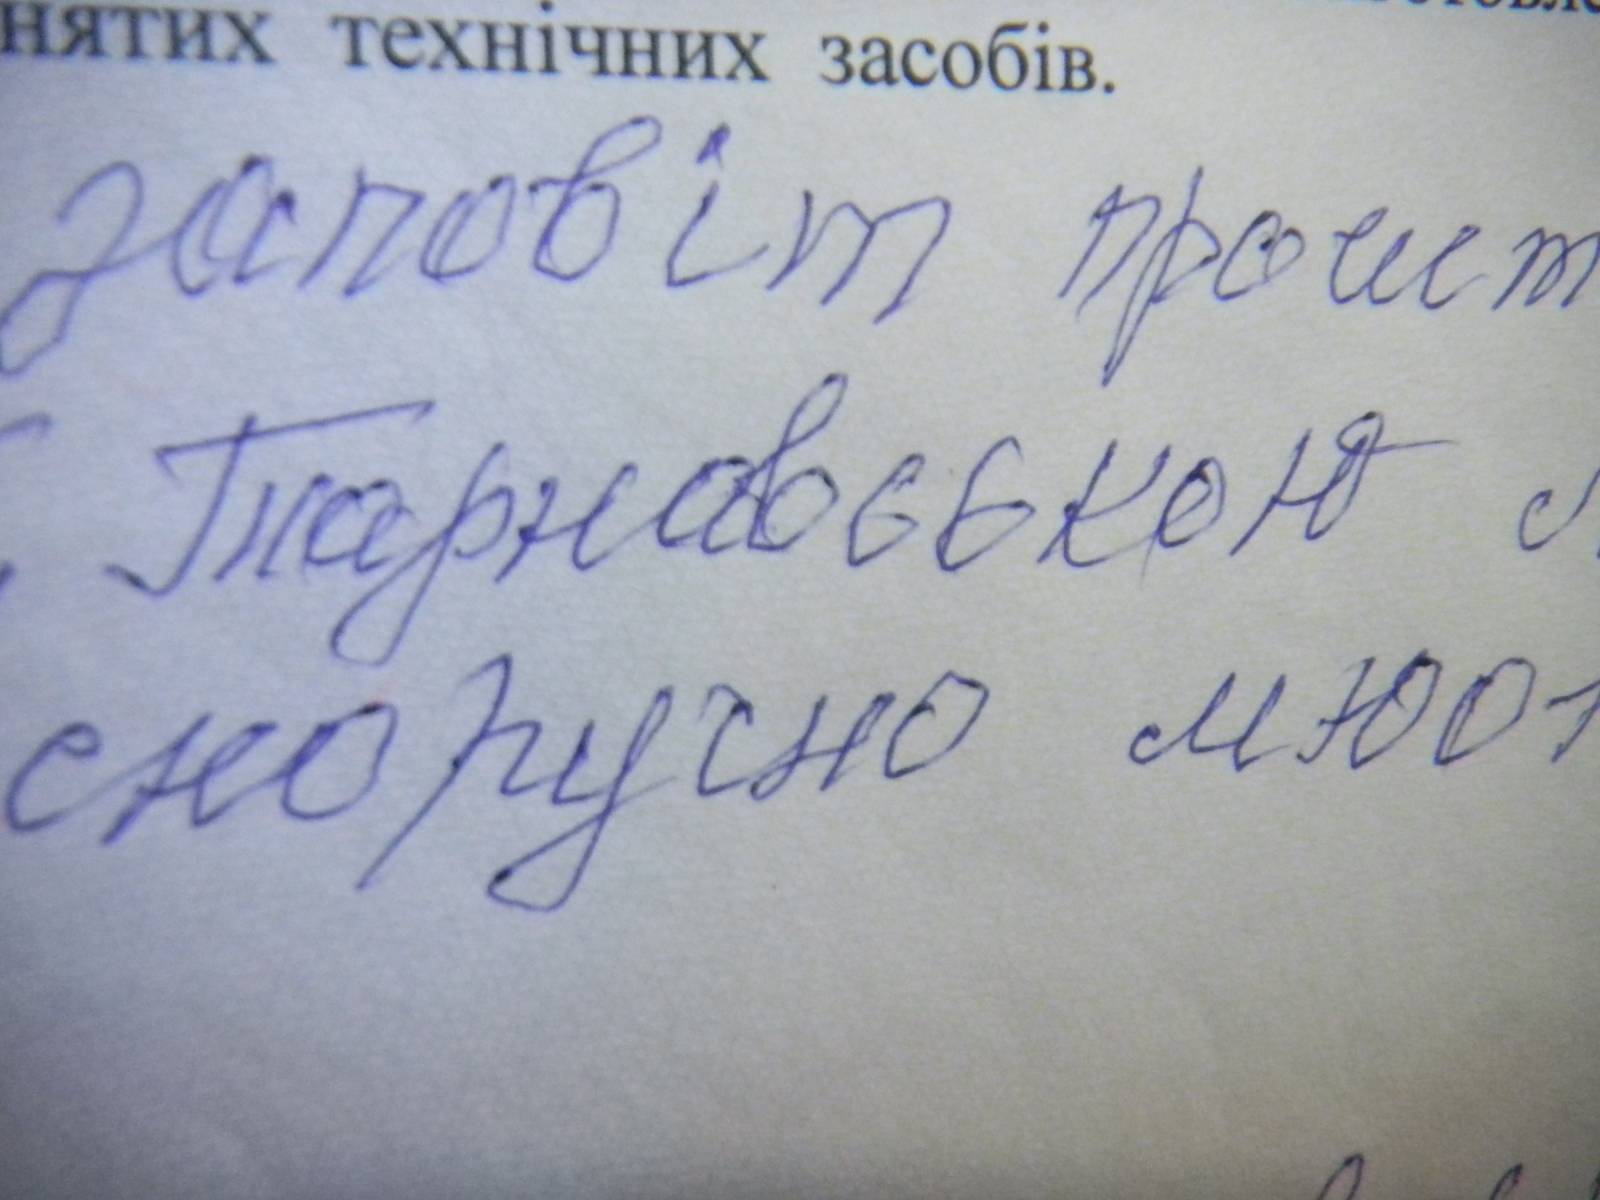 нятих технічних засобів.
заповіт прочит
Тарнавською
сноручно мною